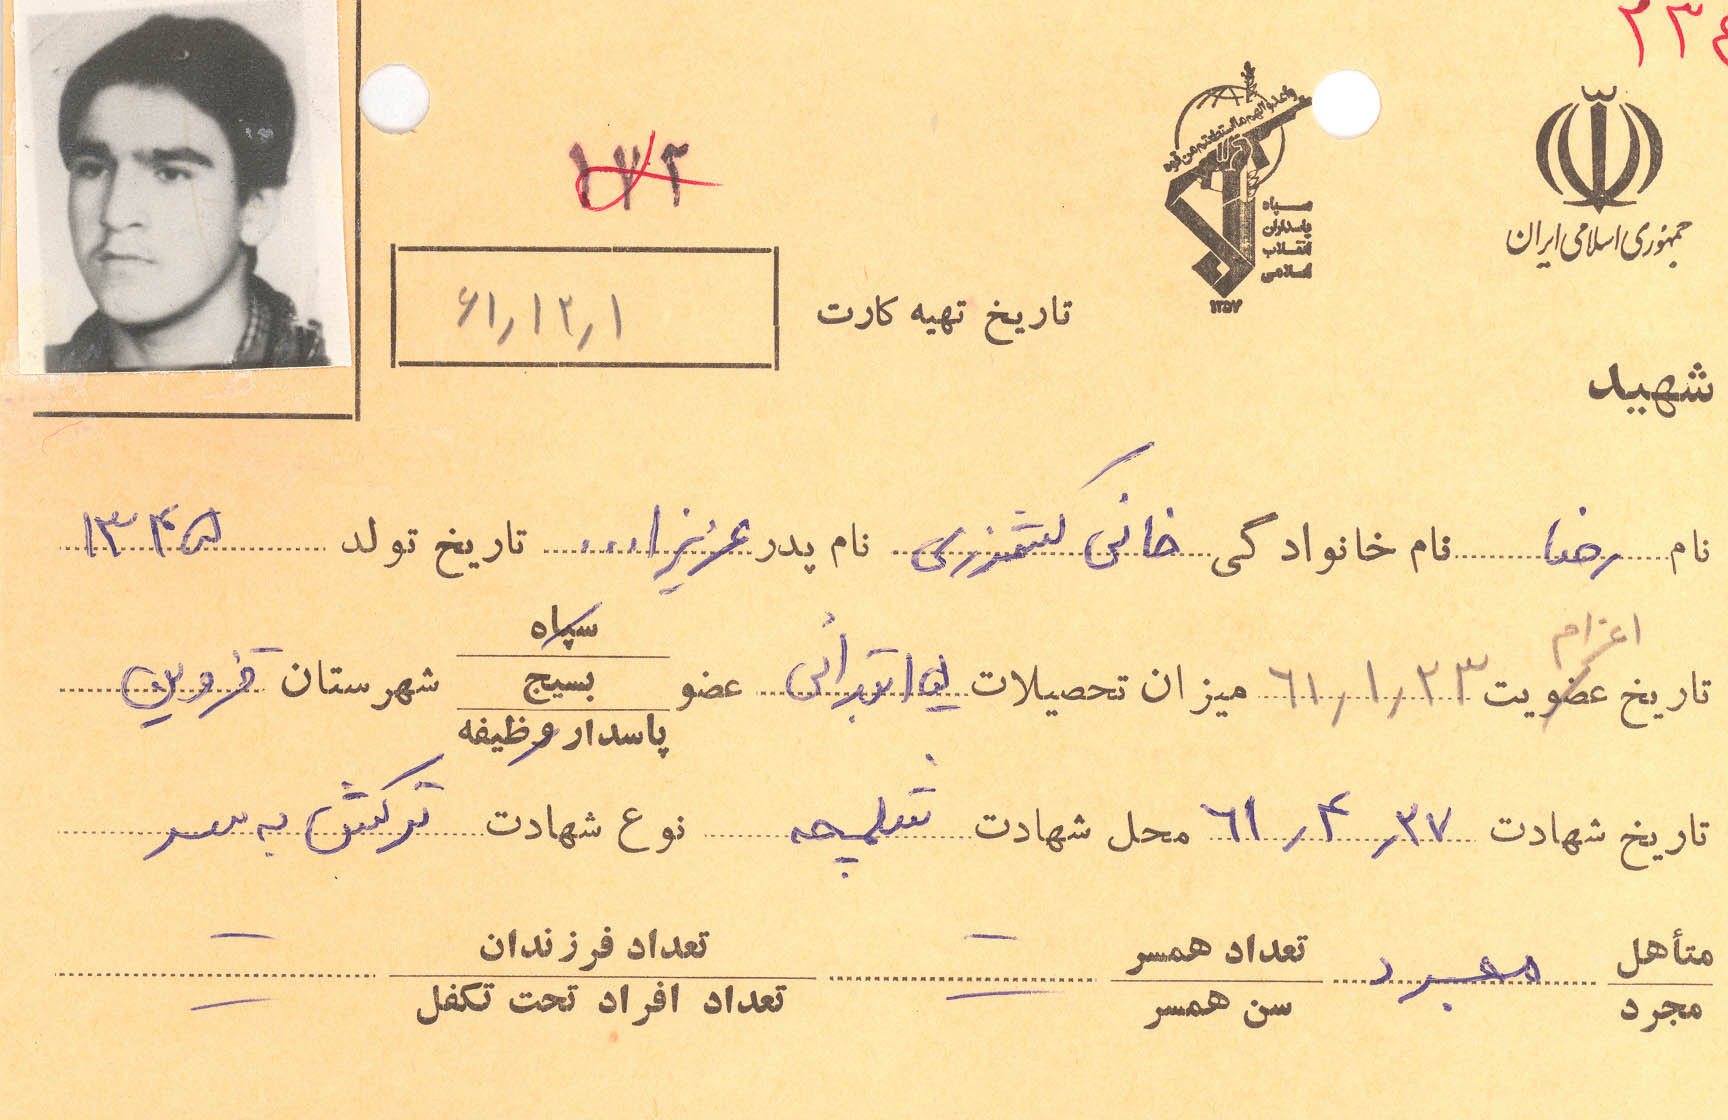 ۲۳۴
واعدوا لهم ما استطعتم من قوة
سپاه
پاسداران
انقلاب
اسلامی
۱۳۵۷
جمهوری اسلامی ایران
۱۷۲
تاریخ تهیه کارت ۶۱٫۱۲٫۱
شهید
نام رضا نام خانوادگی خانی کشمرزی نام پدر عزیزا... تاریخ تولد ۱۳۴۵
اعزام
سپاه
تاریخ عضویت ۶۱٫۱٫۲۳ میزان تحصیلات ۵ ابتدائی عضو بسیج شهرستان قزوین
پاسدار وظیفه
تاریخ شهادت ۶۱٫۴٫۲۷ محل شهادت شلمچه نوع شهادت ترکش به سر
متأهل مجرد تعداد همسر تعداد فرزندان
مجرد سن همسر تعداد افراد تحت تکفل